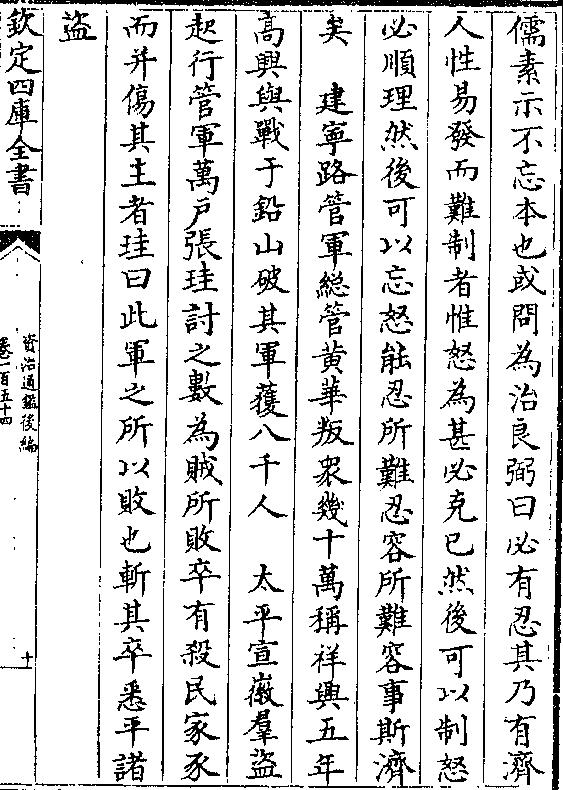 儒素示不忘本也或問為治良弼曰必有忍其乃有濟
人性易發而難制者惟怒為甚必克已然後可以制怒
必順理然後可以忘怒能忍所難忍容所難容事斯濟
矣　建寧路管軍總管黄華叛衆幾十萬稱祥興五年
高興與戰于鉛山破其軍獲八千人　太平宣徽羣盜
起行管軍萬户張珪討之數為賊所敗卒有殺民家豕
而并傷其主者珪曰此軍之所以敗也斬其卒悉平諸
盜
欽定四庫全書
資治通鑑後編
卷一百五十四
十